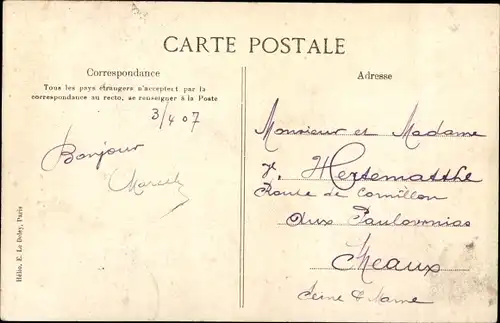 CARTE POSTALE
Correspondance
Tous les pays étrangers n'acceptent pas la
correspondance au recto, se renseigner à la Poste
3/4 07
Bonjour
Marcel
Hélio. E. Le Deley, Paris
Adresse
Monsieur et Madame
Route de Cornillon
aux
Meaux
Seine & Marne